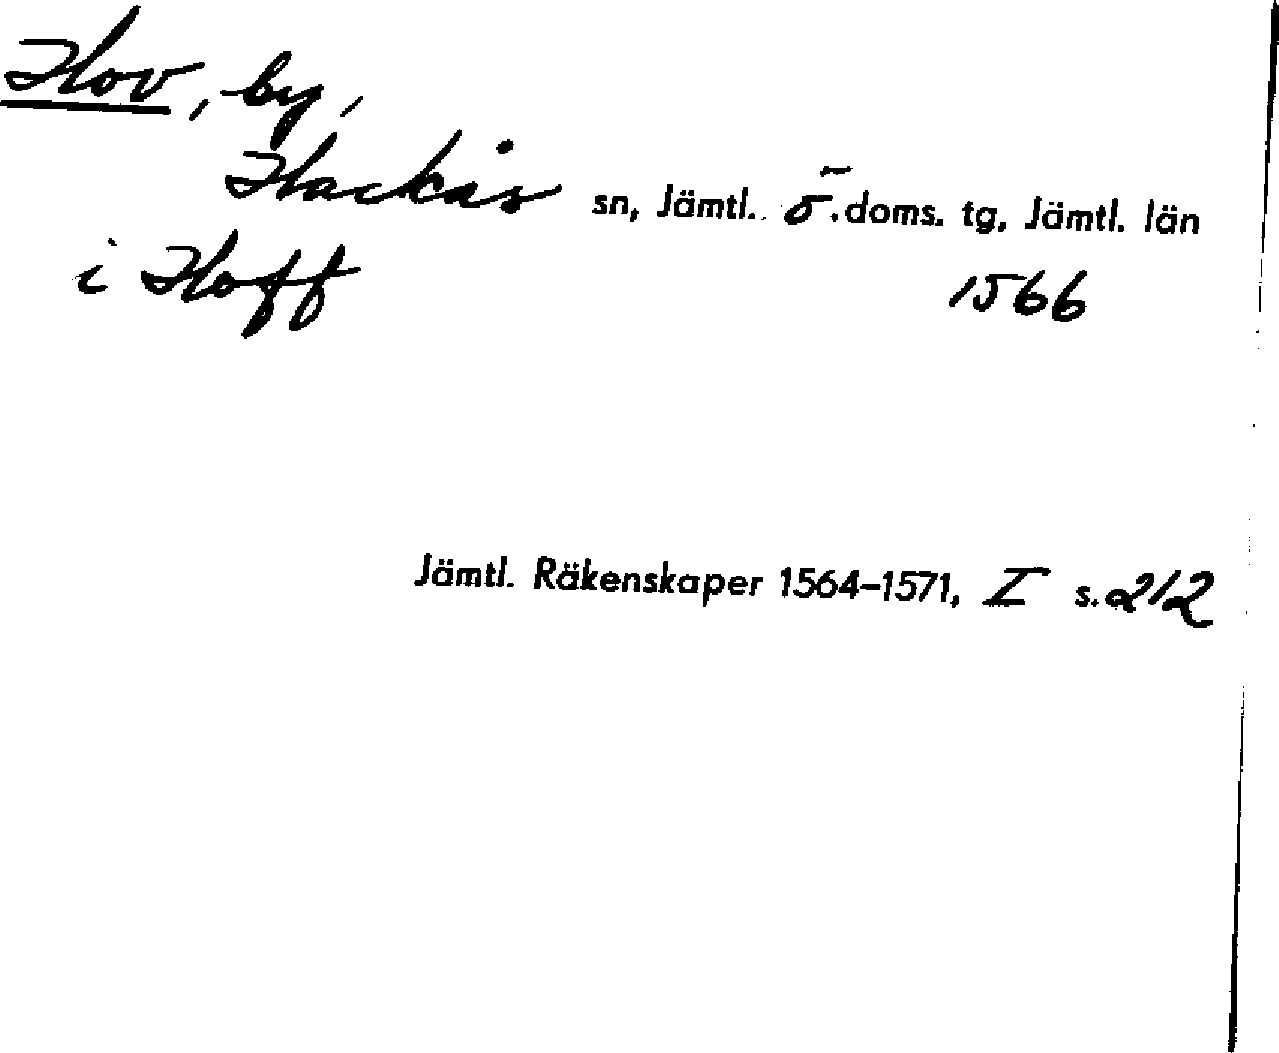 Hov, by,
Hackås sn, Jämtl. ö. doms. tg, Jämtl. län
i Hoff 1566
Jämtl. Räkenskaper 1564-1571, I s. 212